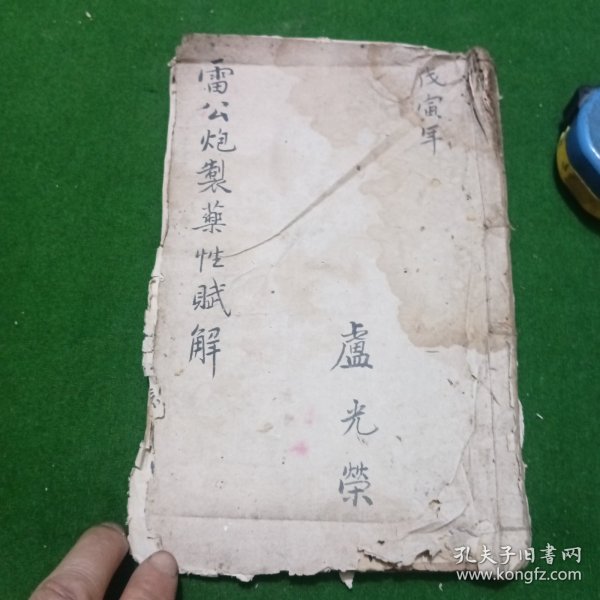 戊寅年
盧光榮
雷公炮製藥性賦解
孔夫子旧书网
www.kongfz.com